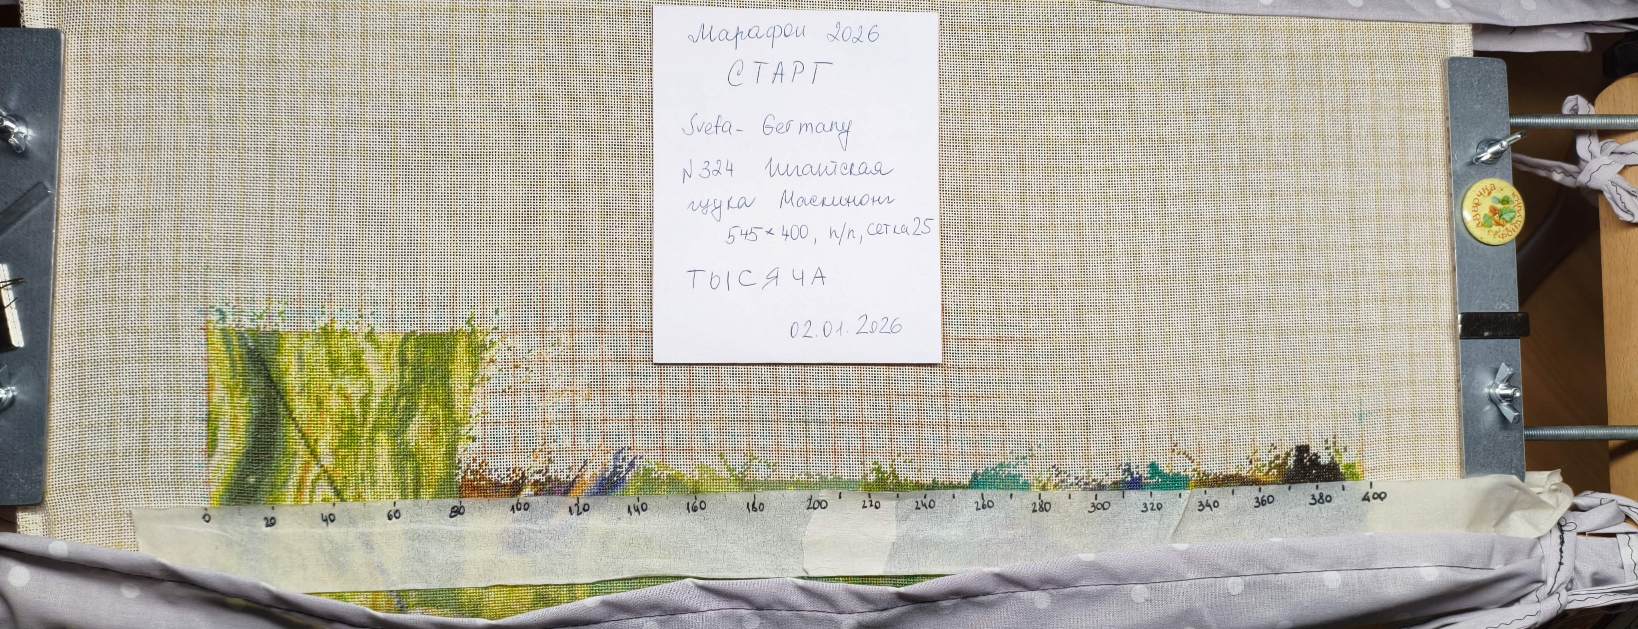 Марафон 2026
СТАРТ
Sveta - Germany
N 324 Гигантская
щука Маскинонг
545 × 400, п/п, сетка 25
ТЫСЯЧА
02.01.2026
0 20 40 60 80 100 120 140 160 180 200 220 240 260 280 300 320 340 360 380 400